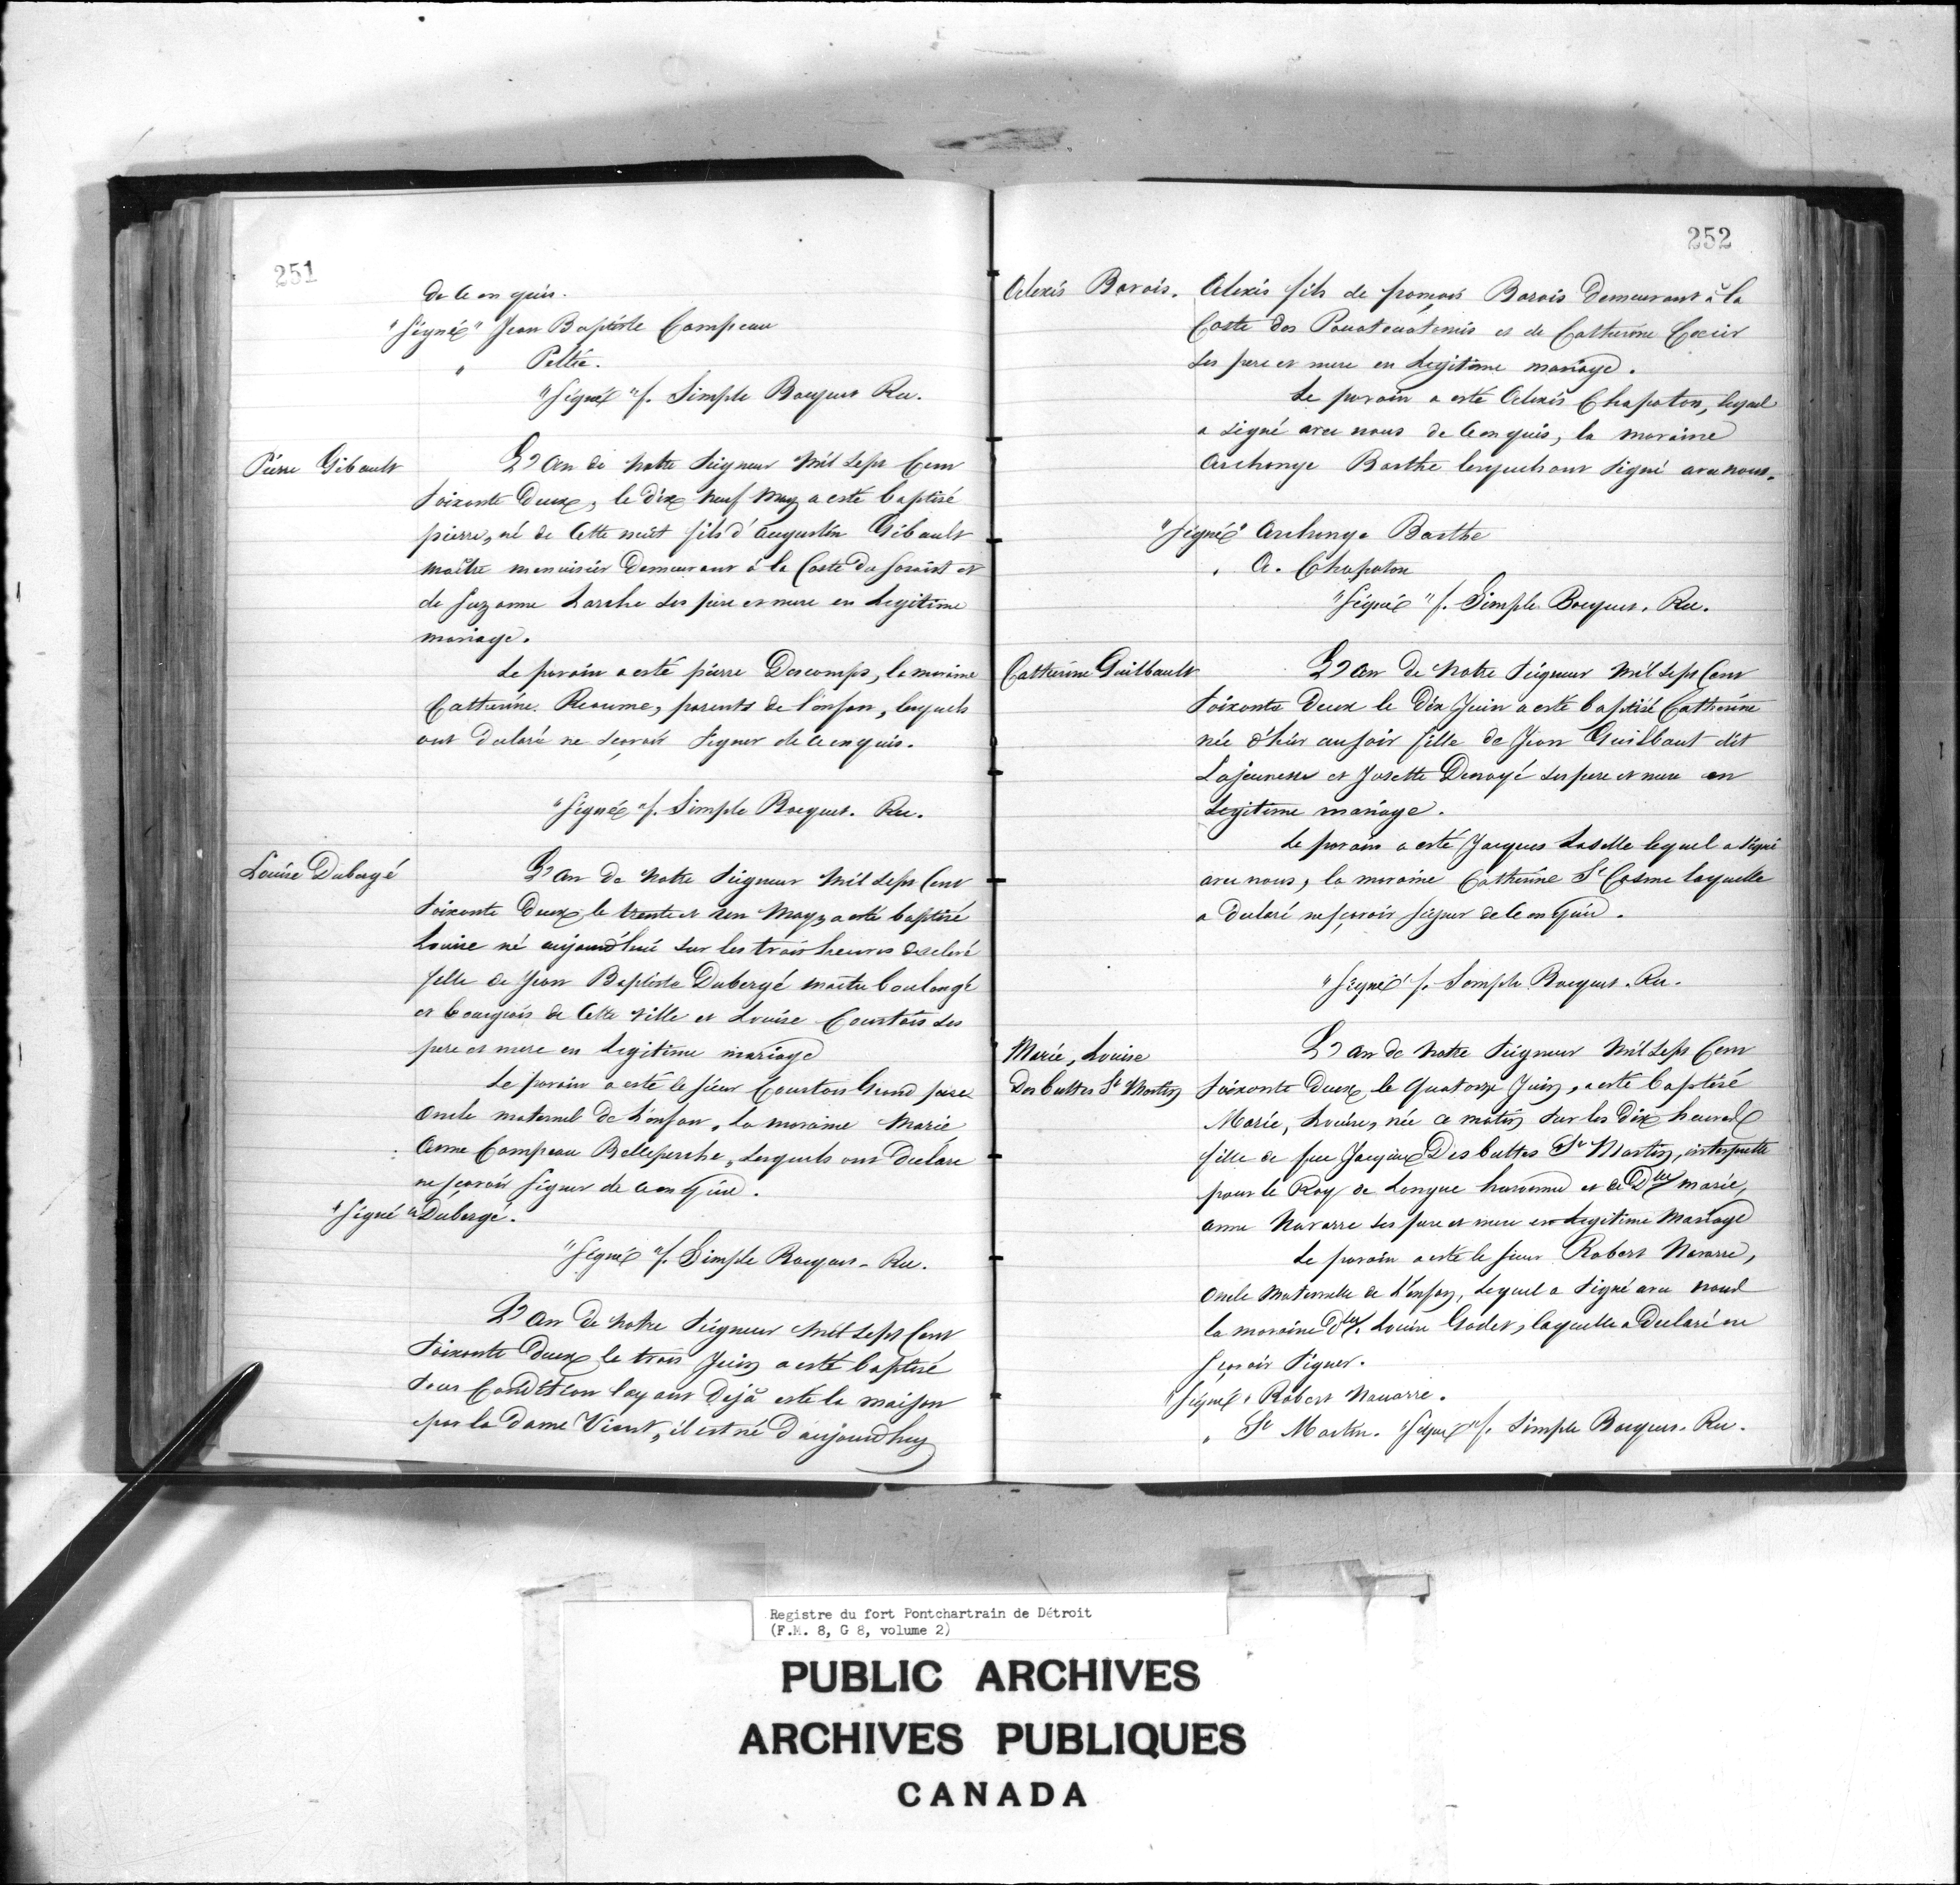 251
de ce enquis.
"Signé" Jean Baptiste Campeau
" Peltié.
"Signé" f. Simple Bocquet Rec.
Pierre Gibault
L'an de notre Seigneur mil sept Cent
Soixante Deux, le dix neuf May a esté baptisé
pierre, né de Cette nuit fils d'augustin Gibault
maître menuisier Demeurant à la Coste du
de Suzanne Larche ses père et mere en Legitime
mariage.
Le parain a esté pierre Descomps, la maraine
Catherine Reaume, parents de l'enfan, lesquels
ont declaré ne sçavoir signer de ce enquis.
"Signé" f. Simple Bocquet. Rec.
Louise Dubergé
L'an de notre Seigneur mil sept Cent
Soixante Deux le trente et un May, a esté baptisé
Louise né aujourd'hui sur les trois heures
fille de Jean Baptiste Dubergé maitre boulangé
et bourgeois de Cette ville et Louise Courtois ses
pere et mere en Legitime mariage
Le parain a esté le sieur Courtois Grand pere
Oncle maternel de L'enfan, la maraine Marie
Anne Campeau Belleperche, Lesquels ont Declare
ne sçavoir signer de ce enquis.
"Signé" Dubergé.
"Signé" f. Simple Bocquet. Rec.
L'an de notre Seigneur mil sept Cent
Soixante Deux le trois Juin a esté baptisé
sous Condition layant Dejà esté la maison
par la dame Viont, il est né D'aujourdhuy
252
Alexis Barois.
Alexis fils de françois Barois Demeurant à la
Coste des Pouatouatomis et de Catherine Cecir
ses pere et mere en Legitime mariage.
Le parain a esté Alexis Chapaton, lequel
a signé avec nous de ce enquis, la maraine
Archange Barthe lesquels ont signé avec nous.
"Signé" Archange Barthe
" A. Chapaton
"Signé" f. Simple Bocquet. Rec.
Catherine Guilbault
L'an de notre Seigneur mil sept Cent
Soixante Deux le Dix Juin a esté baptisé Catherine
née d'hier au soir fille de Jean Guilbaut dit
Lajeunesse et Josette Denoyé ses pere et mere en
Legitime mariage.
Le parain a esté Jacques Laselle lequel a signé
avec nous, la maraine Catherine St Cosme laquelle
a declaré ne sçavoir signer de ce enquis.
"Signé" f. Simple Bocquet. Rec.
Marie, Louise
Des buttes St Martin
L'an de notre Seigneur mil sept Cent
Soixante Deux le quatorze Juin, a esté baptisé
Marie, Louise, née ce matin sur les Dix heures
fille de feu Jacques Des buttes St Martin, interprette
pour le Roy de Langue huronne et de Dlle marie,
anne Navarre ses pere et mere en Legitime Mariage
Le parain a esté le sieur Robert Navarre,
Oncle Maternelle de L'enfan, Lequel a signé avec nous
la maraine Dlle. Louise Godet, laquelle a Declaré ne
sçavoir signer.
"Signé" Robert Navarre.
" St Martin. "Signé" f. Simple Bocquet. Rec.
Registre du fort Pontchartrain de Détroit
(F.M. 8, G 8, volume 2)
PUBLIC ARCHIVES
ARCHIVES PUBLIQUES
CANADA